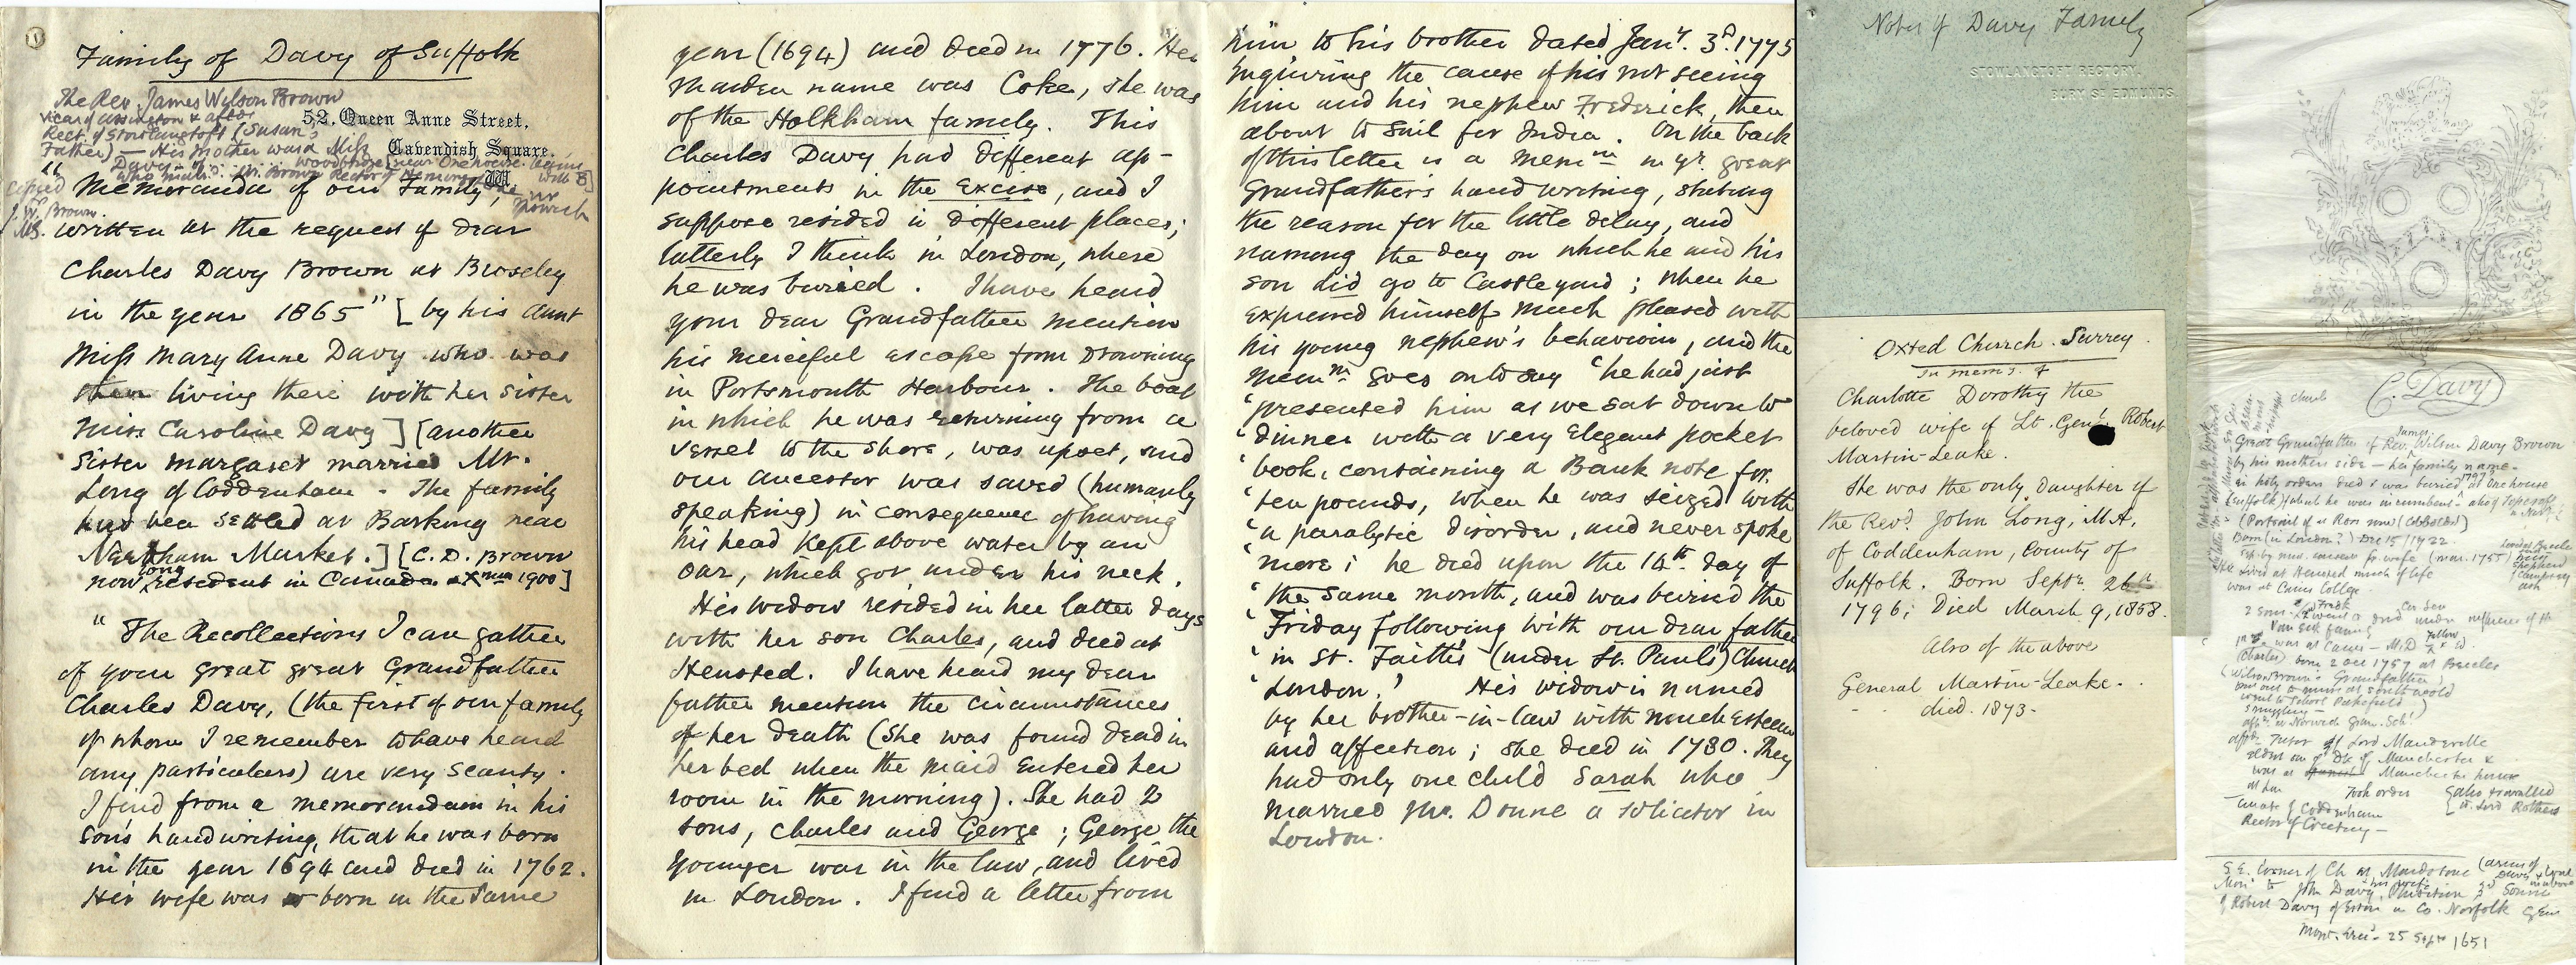 Family of Davy of Suffolk
The Rev. James Wilson Brown
Vicar of Assington & after
Rect. of Stowlangtoft (Susan's
Father) — His mother was a Miss
Davy of ...... Woodbridge
who mar. Mr. Brown Rector of
52, Queen Anne Street,
Cavendish Square.
W.
copied
J. W. Brown
MS.
"Memoranda of our Family,
written at the request of dear
Charles Davy Brown at Broseley
in the year 1865" [by his Aunt
Miss Mary Anne Davy who was
then living there with her sister
Miss Caroline Davy] [another
sister Margaret married Mr.
Long of Coddenham. The family
had been settled at Barking near
Needham Market.] [C. D. Brown
now long resident in Canada 1900]
"The Recollections I can gather
of your great great Grandfather
Charles Davy, (the first of our family
of whom I remember to have heard
any particulars) are very scanty.
I find from a memorandum in his
son's handwriting, that he was born
in the year 1694 and died in 1762.
His wife was born in the same
year (1694) and died in 1776. Her
maiden name was Coke, she was
of the Holkham family. This
Charles Davy had different ap-
pointments in the Excise, and I
suppose resided in different places;
latterly I think in London, where
he was buried. I have heard
your dear Grandfather mention
his merciful escape from drowning
in Portsmouth Harbour. The boat
in which he was returning from a
vessel to the shore, was upset, and
our ancestor was saved (humanly
speaking) in consequence of having
his head kept above water by an
oar, which got under his neck.
His widow resided in her latter days
with her son Charles, and died at
Hensted. I have heard my dear
father mention the circumstances
of her death (she was found dead in
her bed when the maid entered her
room in the morning). She had 2
sons, Charles and George; George the
younger was in the law, and lived
in London. I find a letter from
him to his brother dated Jany. 3d. 1775
inquiring the cause of his not seeing
him and his nephew Frederick, then
about to sail for India. On the back
of this letter is a memm in yr. great
Grandfather's handwriting, stating
the reason for the little delay, and
naming the day on which he and his
son did go to Castle yard; when he
expressed himself much pleased with
his young nephew's behaviour, and the
memm. goes on to say 'he had just
'presented him as we sat down to
'dinner with a very elegant pocket
'book, containing a Bank note for
'ten pounds, when he was seized with
'a paralytic disorder, and never spoke
'more; he died upon the 14th day of
'the same month, and was buried the
'Friday following with our dear father
'in St. Faith's (under St. Paul's) Church
'London.' His widow is named
by her brother-in-law with much esteem
and affection; she died in 1780. They
had only one child Sarah who
married Mr. Donne a solicitor in
London.
Notes of Davy Family
STOWLANGTOFT RECTORY,
BURY ST EDMUNDS.
Oxted Church. Surrey.
In mem. of
Charlotte Dorothy the
beloved wife of Lt. Genl. Robert
Martin-Leake.
She was the only daughter of
the Revd. John Long, M.A,
of Coddenham, County of
Suffolk. Born Septr. 26th
1796; Died March 9, 1858.
Also of the above
General Martin-Leake.
died. 1873.
C. Davy
Great Grandfather of Rev. James Wilson Davy Brown
by his mother's side — her family name.
in holy orders died & was buried 1797 at Onehouse
(Suffolk) of which he was incumbent
Born (in London?) Dec 15/1722
He lived at Henstead much of life
was at Caius College
was at Caius — M.D.
(Charles) born 2 Oct 1757 at Beccles
(Wilson Brown's Grandfather)
put out to nurse at Southwold
went to school Pakefield
smuggling —
aftds. at Norwich Gram. Schl.
aftds. Tutor of Lord Mandeville
eldest son of Dk of Manchester &
was at Manchester house
Took orders
also travelled
Curate of Coddenham
Rector of Creeting —
S.E. Corner of Ch at Maidstone
(arms of Davy
Mont. to John Davy, Phisition 3d Sonne
of Robert Davy of in Co. Norfolk Gent
25 Sept 1651